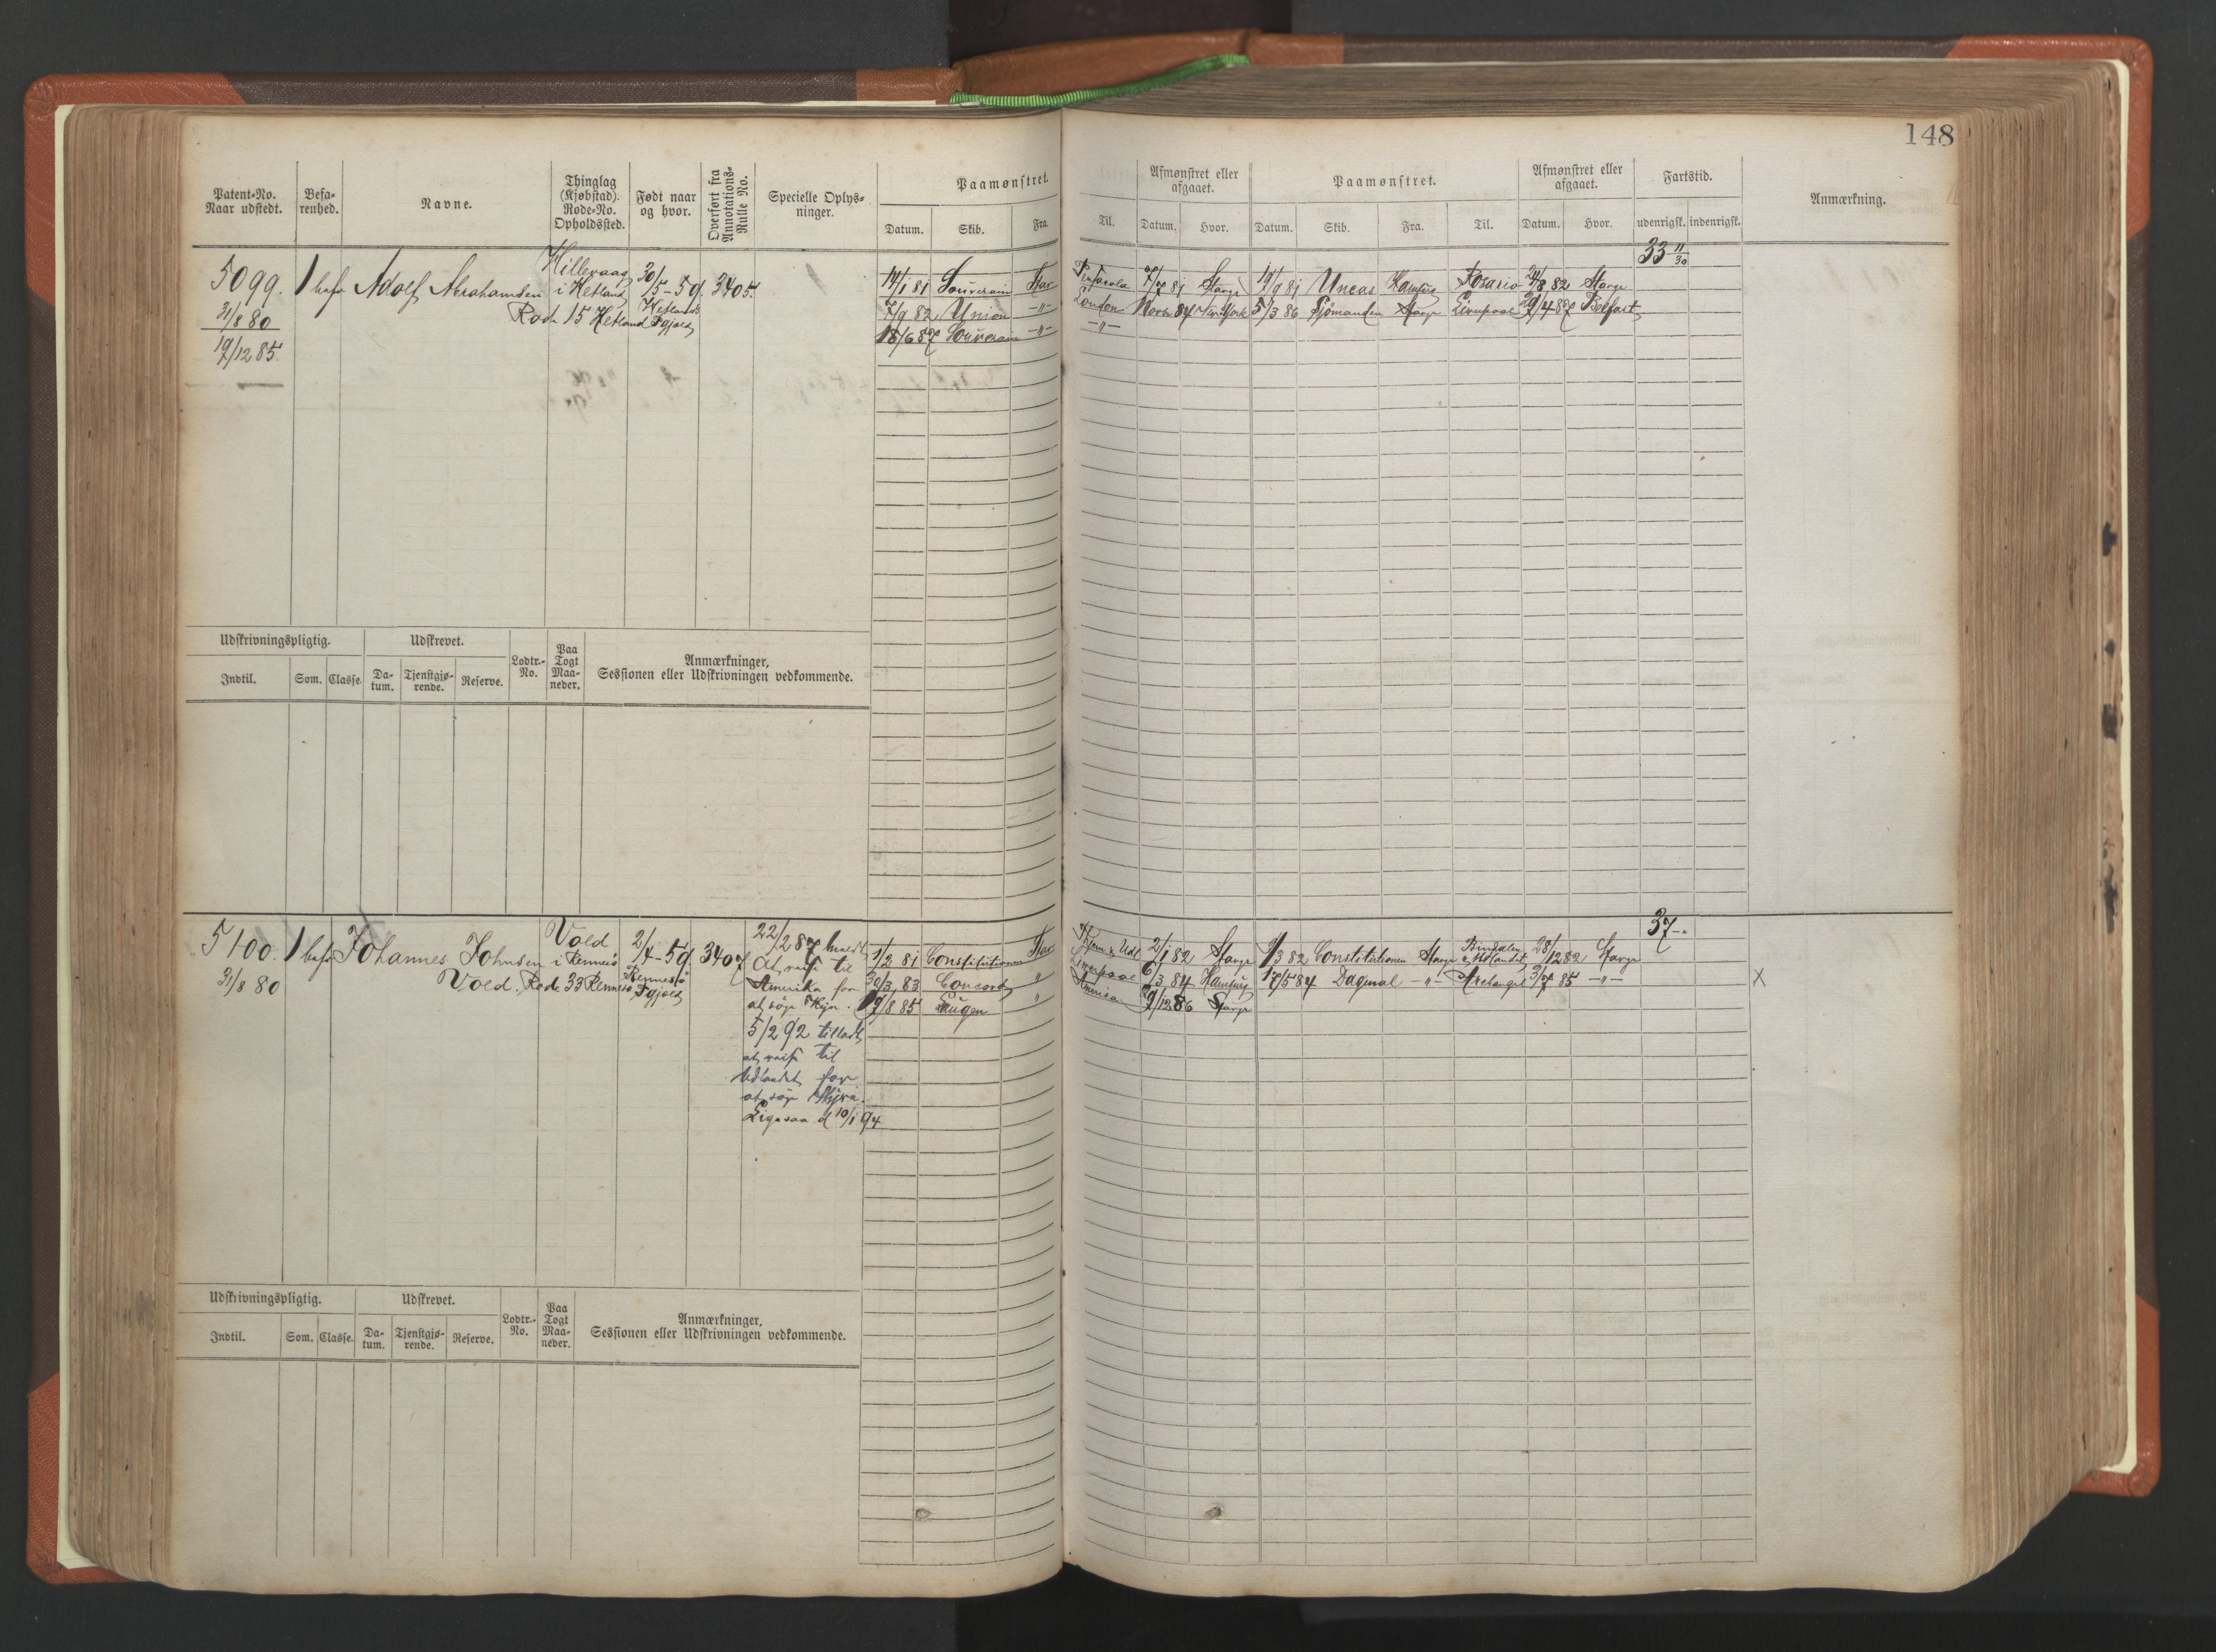 148
Patent-No. Naar udstedt.
Befarenhed.
Navne.
Thinglag (Kjøbstad). Rode-No. Opholdssted.
Født naar og hvor.
Overført fra Annotations-Rulle No.
Specielle Oplysninger.
Paamønstret.
Datum. Skib. Fra. Til.
Afmønstret eller afgaaet.
Datum. Hvor.
Paamønstret.
Datum. Skib. Fra. Til.
Afmønstret eller afgaaet.
Datum. Hvor.
Fartstid.
udenrigsk. indenrigsk.
Anmærkning.
33 11/30
5099. 1 bef. Adolf Abrahamsen
Hillevaag i Hetland
Rode 15 Hetland
30/5-59. Hetlands Pgjeld
3405.
31/8 80
19/12 85.
14/1 81 Souverain Stav Pensacola 7/7 81 Stavgr 19/9 81 Uncas Hamburg Rosario 24/8 82 Stavgr
7/9 82 Union -"- London Novbr 84 New York 5/3 86 Sjömanden Stavgr Liverpool 29/4 87 Belfast
18/6 87 Souverain -"- -"-
Udskrivningspligtig.
Udskrevet.
Lodtr.-No.
Paa Togt Maaneder.
Anmærkninger, Sessionen eller Udskrivningen vedkommende.
Indtil. Som. Classe. Datum. Tjenstgjørende. Reserve.
37 -"
5100. 1 bef. Johannes Johnsen
Vold i Rennesö
Vold. Rode 33 Rennesö
2/4-59 Rennesö Pgjeld
3407
31/8 80
22/2 87
at reise til
Amerika for
at söge Hyre.
5/2 92 tilladt
at reise til
Udlandet for
at söge Hyre.
Ligesaa d 10/1 94
1/2 81 Constitutionen Stav 2/1 82 Stavgr 9/3 82 Constitutionen Stavgr Udlandet 28/12 82 Stavgr
30/3 83 Concord " Liverpool 6/3 84 Hamburg 17/5 84 Dagmal -"- Archangel 3/7 85 -"-
19/8 85 Eugen " America 29/12 86 Stavgr
X
Udskrivningspligtig.
Udskrevet.
Lodtr.-No.
Paa Togt Maaneder.
Anmærkninger, Sessionen eller Udskrivningen vedkommende.
Indtil. Som. Classe. Datum. Tjenstgjørende. Reserve.